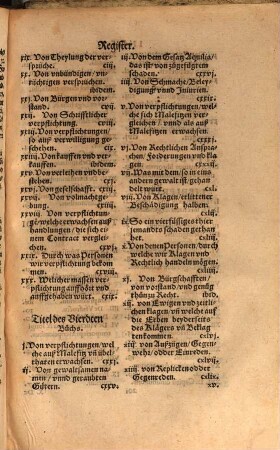 Register.
xix. Von Theylung der ver-
sprüche. ciij.
xx. Von unbündigen/un-
rüchtigen versprüchen.
ibidem.
xxj. Von Bürgen und vor-
stand.
xxij. Von Schrifftlicher
verpflichtung.
xxiij. Von verpflichtungen/
so auß verwilligung ge-
schehen. ibidem.
xxiiij. Von kauffen und ver-
kauffen. ibidem.
xxv. Von verleihen und be-
stehen.
xxvj. Von geselschafft.
xxvij. Von volmachtge-
bung.
xxviij. Von verpflichtun-
gen/welche erwachsen auß
handlungen/die sich ei-
nem Contract verglei-
chen.
xxix. Durch was Personen
wir verpflichtung bekom-
men.
xxx. Welcher massen ver-
pflichtung auffhört und
auffgehaben würt.
Titel des Vierdten
Buchs.
j. Von verpflichtungen/wel-
che auß Malefitz uñ übel-
thaten erwachsen.
ij. Von gewaltsamen na-
men/unnd geraubten
Gütern. cxxv.
iij. Von dem Gesatz Aquilia/
das ist/von zůgefügtem
schaden. cxxvj.
iiij. Von Schmache/Beley-
digung unnd Iniurien.
v. Von verpflichtungen/wel-
che sich Malefitzen ver-
gleichen/und nit als auß
Malefitzen erwachsen.
vj. Von Rechtlichen Ansprac-
chen/Forderungen und kla-
gen.
vij. Was mit dem/so in eins
andern gewalt ist gehan-
delt würt.
viij. Von Klagen/erlittener
Beschädigung halben.
ix. So ein vierfüssiges thier
jemandts schaden gethan
hat.
x. Von denen Personen/durch
welche wir ein klagen und
Rechtlich handeln mögen.
xj. Von Bürgschafften/
von vorstand/und genůg
thůn zu Recht. ibid.
xij. Von Ewigen und zeitli-
chen klagen/uñ welche auff
die Erben beyderseits
des Klägers uñ Beklag-
ten kommen.
xiij. von Außzügen/Gegen-
wehr/odder Einreden.
xiiij. von Replicken odder
Gegenreden.
xv.